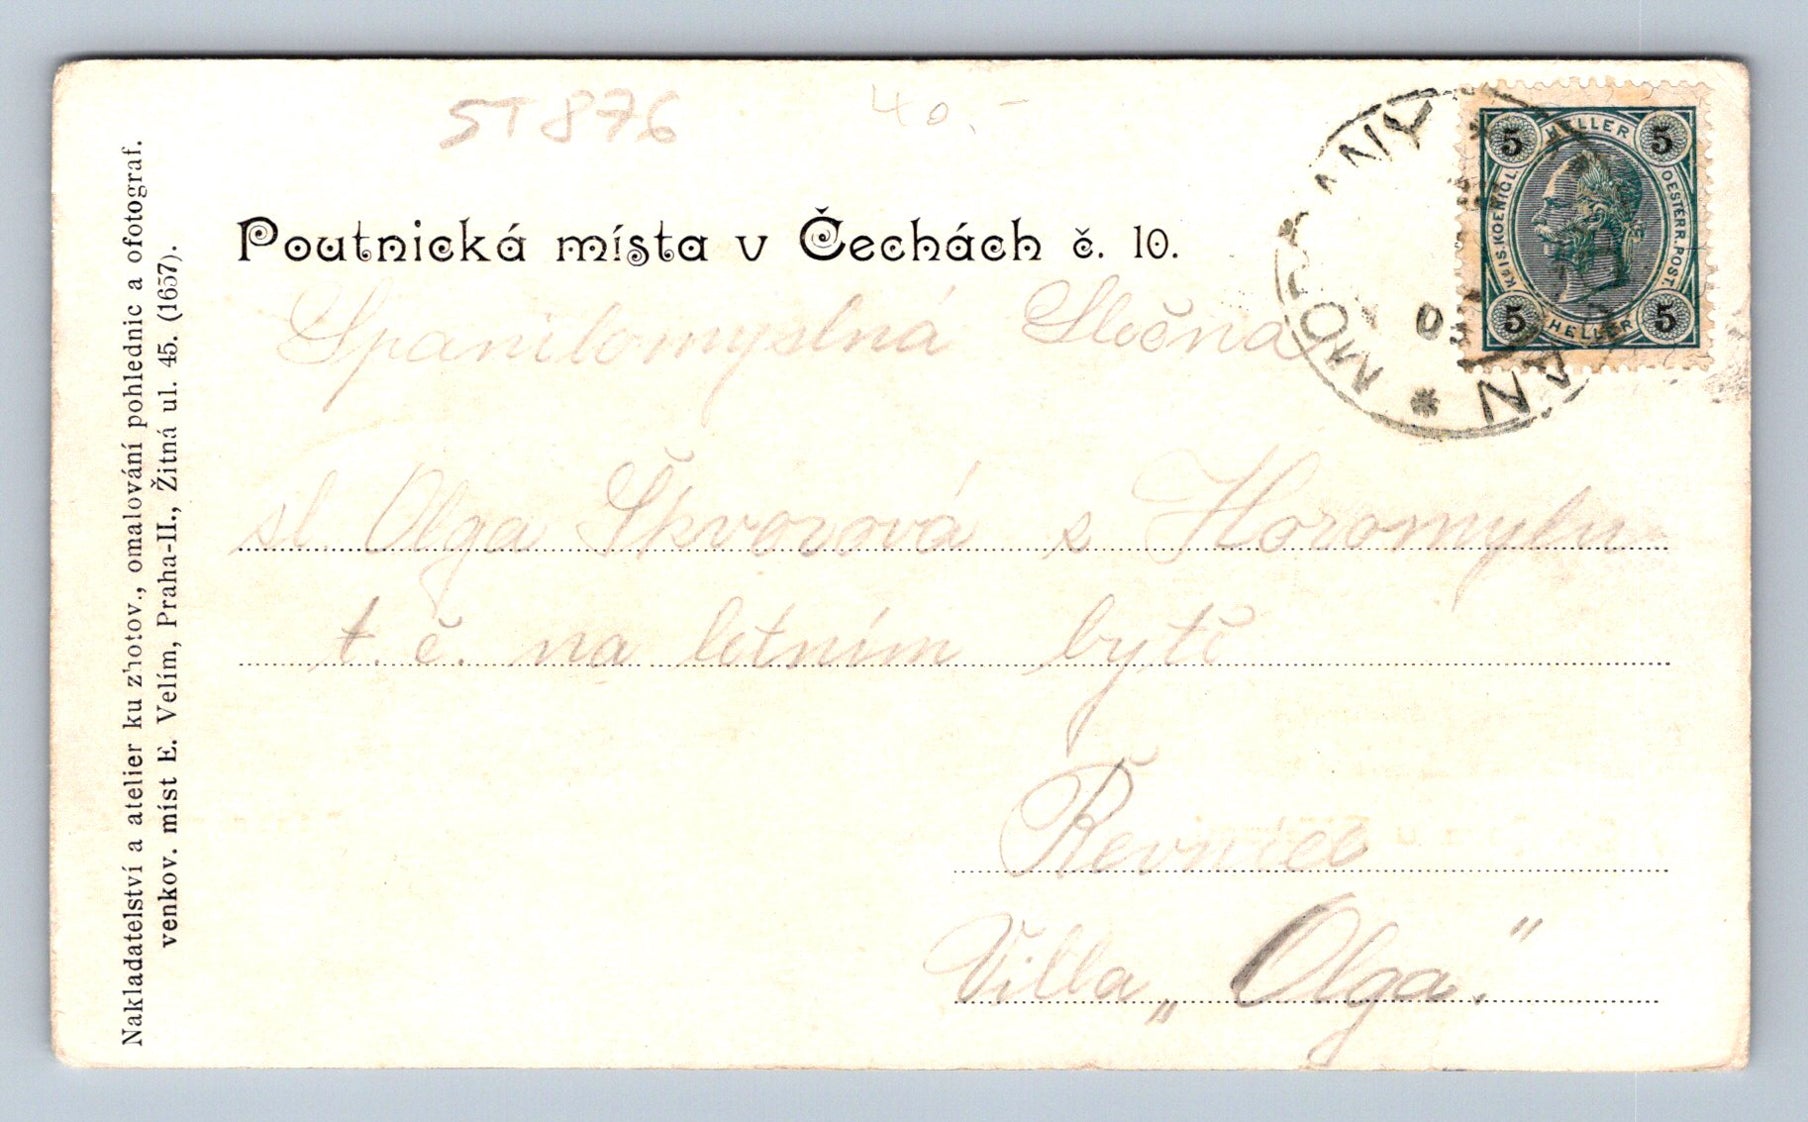 ST 876
40.-
Poutnická místa v Čechách č. 10.
5 HELLER 5
KAIS. KOENIGL. OESTERR. POST.
5 HELLER 5
Spanilomyslná Slečna
sl. Olga Škvorová z Horomyslu
t. č. na letním bytě
Řevnice
Villa „Olga."
Nakladatelství a atelier ku zhotov., omalování pohlednic a ofotograf.
venkov. míst E. Velím, Praha-II., Žitná ul. 45. (1657).